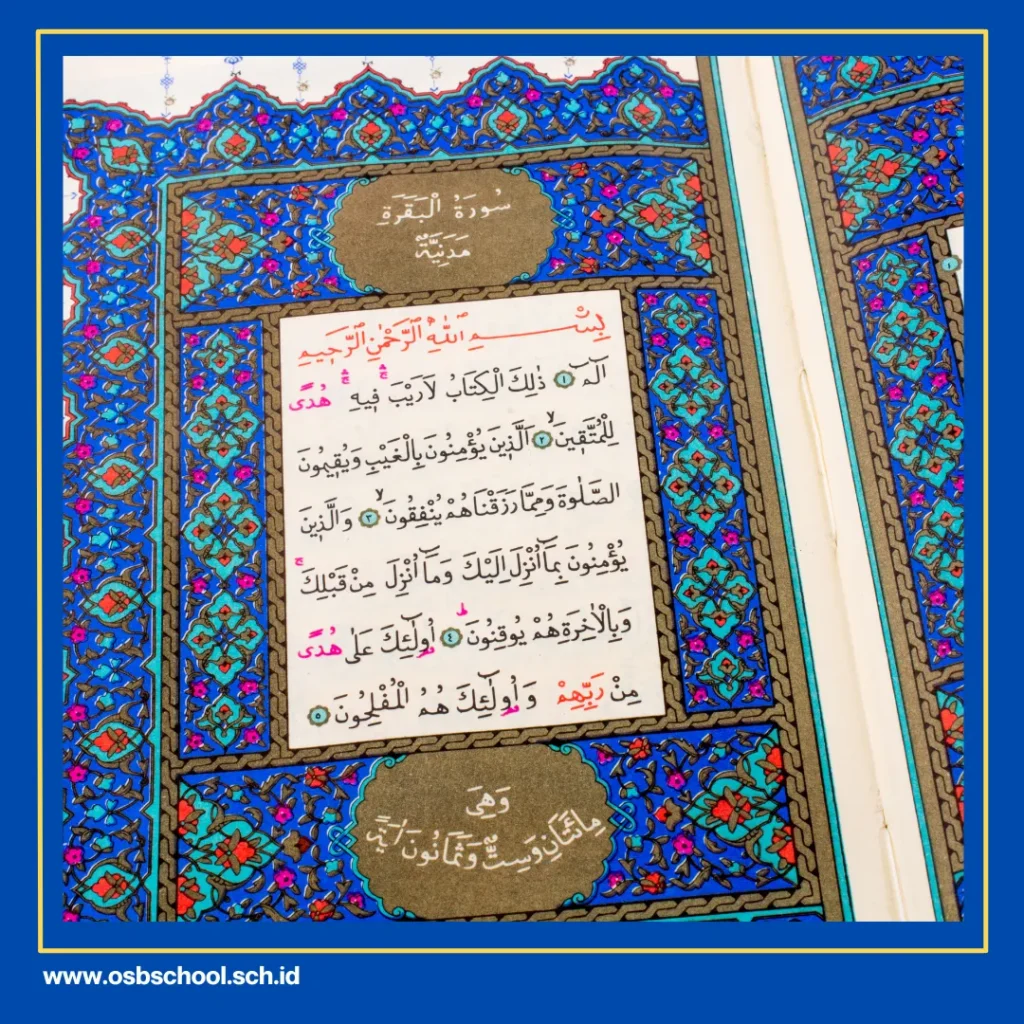 سُورَةُ الْبَقَرَةِ
مَدَنِيَّةٌ
بِسْمِ اللّٰهِ الرَّحْمٰنِ الرَّحِيمِ
الٓمٓ ﴿١﴾ ذٰلِكَ الْكِتَابُ لَارَيْبَ ۛ فِيهِ ۛ هُدًى
لِلْمُتَّقِينَ ۙ ﴿٢﴾ اَلَّذِينَ يُؤْمِنُونَ بِالْغَيْبِ وَيُقِيمُونَ
الصَّلٰوةَ وَمِمَّا رَزَقْنَاهُمْ يُنْفِقُونَ ۙ ﴿٣﴾ وَالَّذِينَ
يُؤْمِنُونَ بِمَٓا اُنْزِلَ اِلَيْكَ وَمَٓا اُنْزِلَ مِنْ قَبْلِكَ ۚ
وَبِالْاٰخِرَةِ هُمْ يُوقِنُونَ ۜ ﴿٤﴾ اُو۬لٰٓئِكَ عَلٰى هُدًى
مِنْ رَبِّهِمْ وَاُو۬لٰٓئِكَ هُمُ الْمُفْلِحُونَ ﴿٥﴾
وَهِيَ
مِائَتَانِ وَسِتٌّ وَثَمَانُونَ اٰيَةً
١
www.osbschool.sch.id